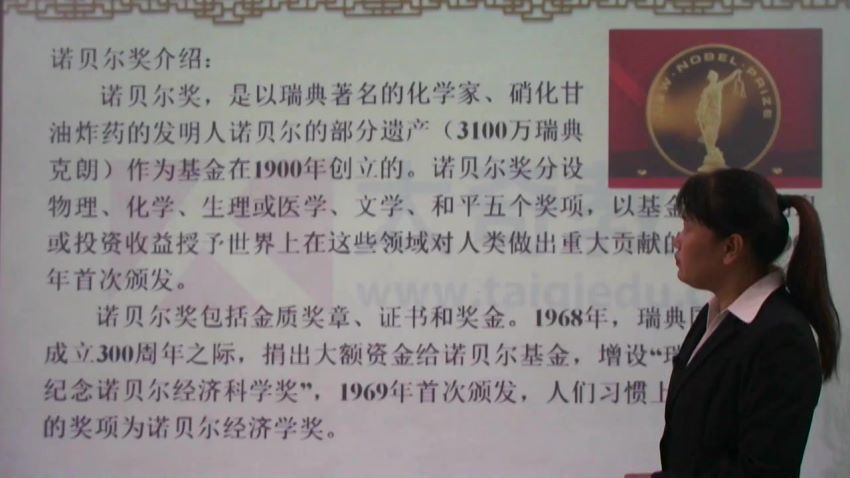 诺贝尔奖介绍：
NEW·NOBEL·PRIZE
诺贝尔奖，是以瑞典著名的化学家、硝化甘
油炸药的发明人诺贝尔的部分遗产（3100万瑞典
克朗）作为基金在1900年创立的。诺贝尔奖分设
物理、化学、生理或医学、文学、和平五个奖项，以基金
或投资收益授予世界上在这些领域对人类做出重大贡献的
年首次颁发。
www.taiqiedu.
诺贝尔奖包括金质奖章、证书和奖金。1968年，瑞典
成立300周年之际，捐出大额资金给诺贝尔基金，增设“瑞
纪念诺贝尔经济科学奖”，1969年首次颁发，人们习惯上
的奖项为诺贝尔经济学奖。